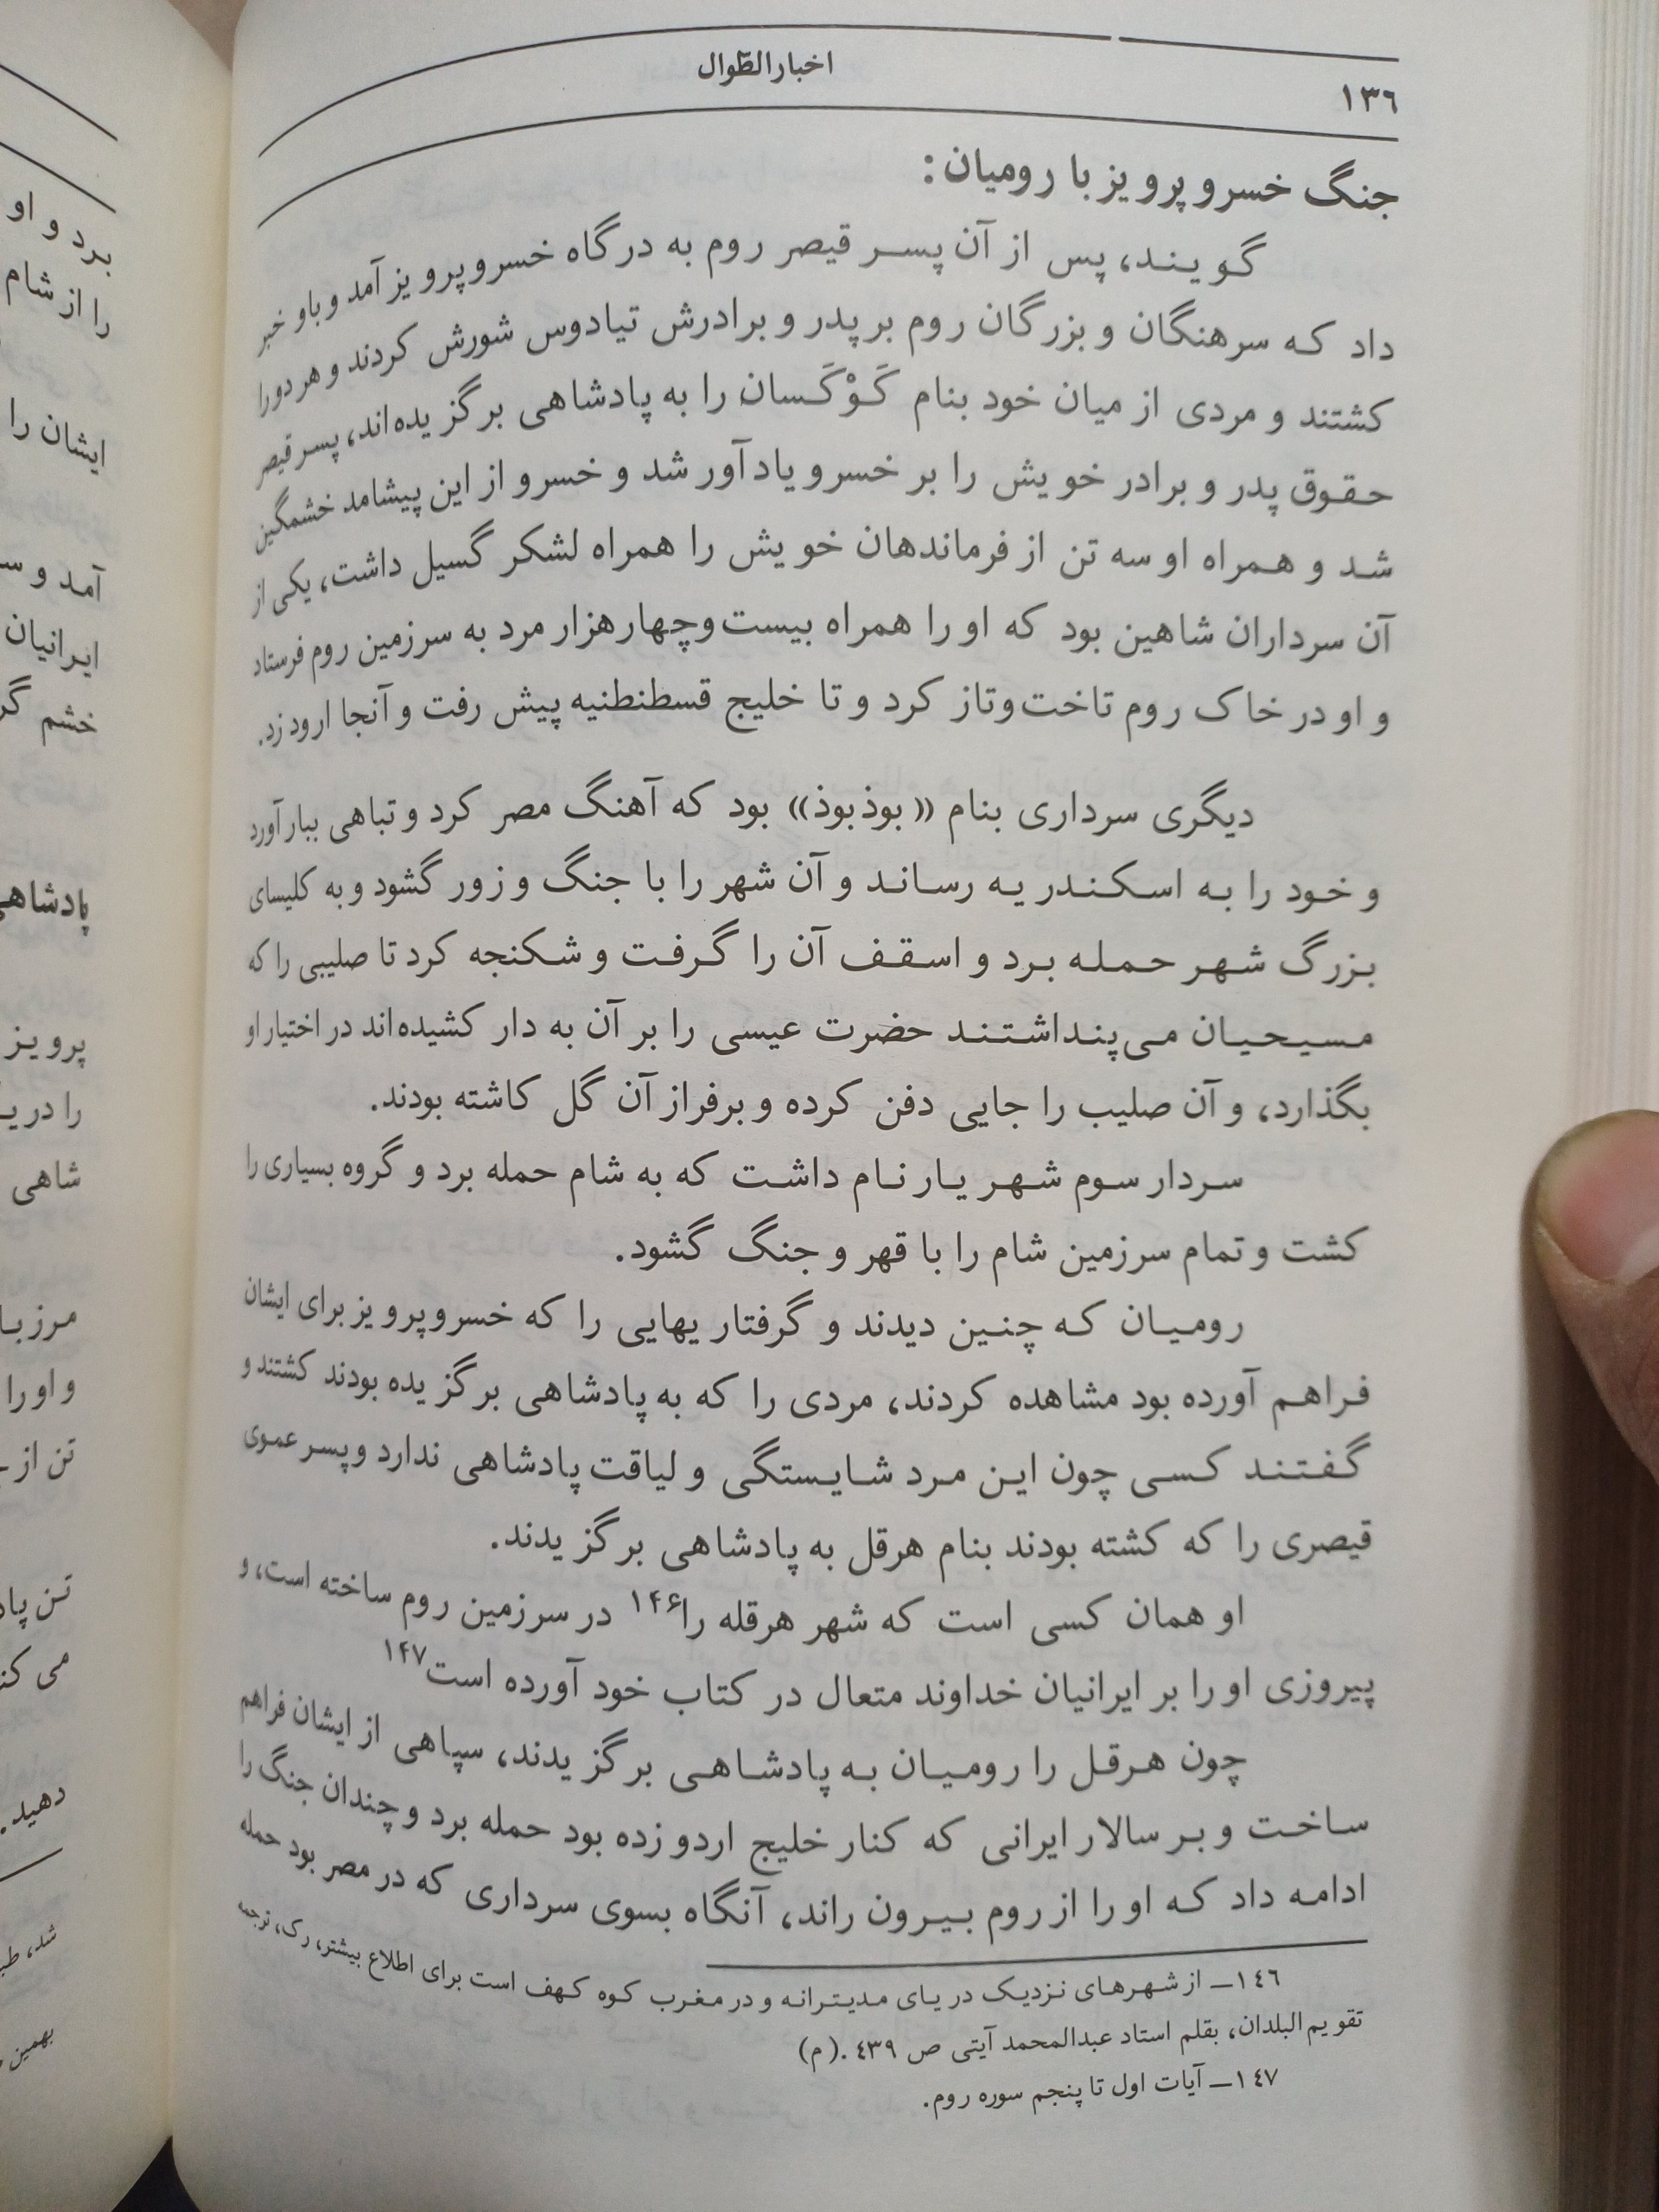 اخبارالطّوال
۱۳٦
جنگ خسرو پرویز با رومیان:
گویند، پس از آن پسر قیصر روم به درگاه خسروپرویز آمد و باو خبر
داد که سرهنگان و بزرگان روم بر پدر و برادرش تیادوس شورش کردند و هر دو را
کشتند و مردی از میان خود بنام کَوْکَسان را به پادشاهی برگزیده‌اند، پسر قیصر
حقوق پدر و برادر خویش را بر خسرو یادآور شد و خسرو از این پیشامد خشمگین
شد و همراه او سه تن از فرماندهان خویش را همراه لشکر گسیل داشت، یکی از
آن سرداران شاهین بود که او را همراه بیست‌وچهارهزار مرد به سرزمین روم فرستاد
و او در خاک روم تاخت‌وتاز کرد و تا خلیج قسطنطنیه پیش رفت و آنجا ارود زد.
دیگری سرداری بنام «بوذبوذ» بود که آهنگ مصر کرد و تباهی ببار آورد
و خود را به اسکندریه رساند و آن شهر را با جنگ و زور گشود و به کلیسای
بزرگ شهر حمله برد و اسقف آن را گرفت و شکنجه کرد تا صلیبی را که
مسیحیان می‌پنداشتند حضرت عیسی را بر آن به دار کشیده‌اند در اختیار او
بگذارد، و آن صلیب را جایی دفن کرده و برفراز آن گل کاشته بودند.
سردار سوم شهریار نام داشت که به شام حمله برد و گروه بسیاری را
کشت و تمام سرزمین شام را با قهر و جنگ گشود.
رومیان که چنین دیدند و گرفتاریهایی را که خسروپرویز برای ایشان
فراهم آورده بود مشاهده کردند، مردی را که به پادشاهی برگزیده بودند کشتند و
گفتند کسی چون این مرد شایستگی و لیاقت پادشاهی ندارد و پسر عموی
قیصری را که کشته بودند بنام هرقل به پادشاهی برگزیدند.
او همان کسی است که شهر هرقله را۱۴۶ در سرزمین روم ساخته است، و
پیروزی او را بر ایرانیان خداوند متعال در کتاب خود آورده است۱۴۷
چون هرقل را رومیان به پادشاهی برگزیدند، سپاهی از ایشان فراهم
ساخت و بر سالار ایرانی که کنار خلیج اردو زده بود حمله برد و چندان جنگ را
ادامه داد که او را از روم بیرون راند، آنگاه بسوی سرداری که در مصر بود حمله
۱٤٦ــ از شهرهای نزدیک دریای مدیترانه و در مغرب کوه کهف است برای اطلاع بیشتر، رک، ترجمه
تقویم‌البلدان، بقلم استاد عبدالمحمد آیتی ص ٤۳۹. (م)
۱٤۷ــ آیات اول تا پنجم سوره روم.
برد و او
را از شام
ایشان را
آمد و
ایرانیان
خشم
پرویز
شاهی
و او را
تن از
دهید.
شد،
بهمین